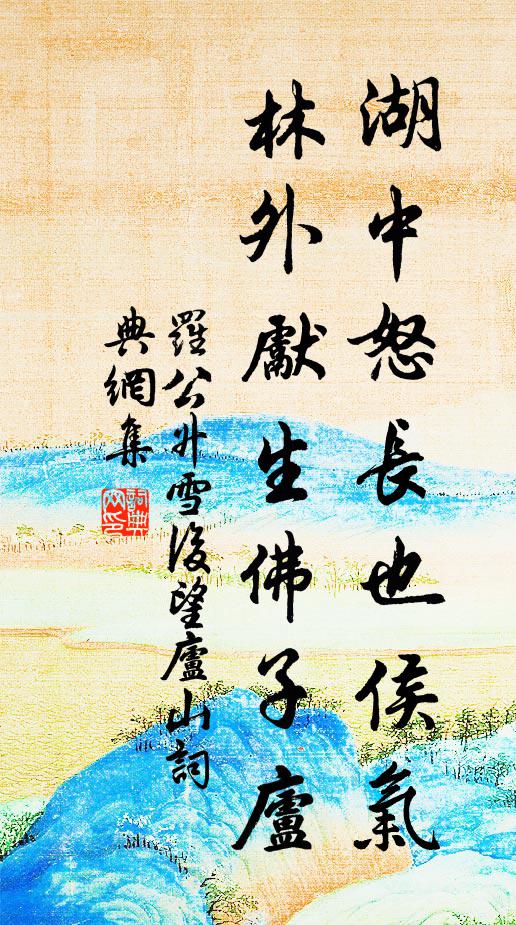 湖中怒長也侯氣
林外獻生佛子廬
羅公升雪後望廬山詞
典網集
詞典網印